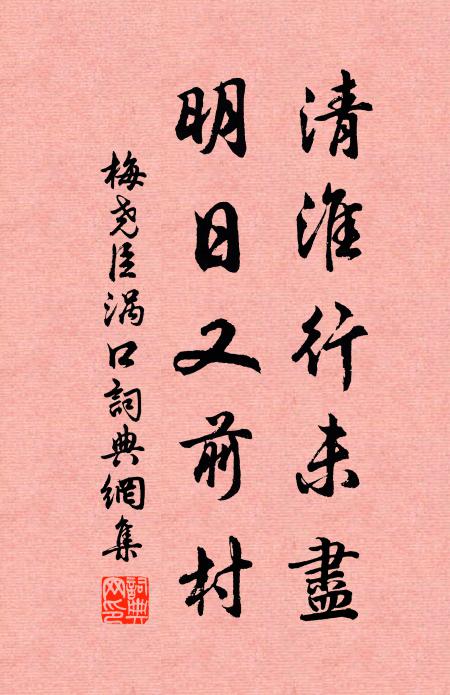 清淮行未盡
明日又前村
梅堯臣渦口詞典網集
詞典网印